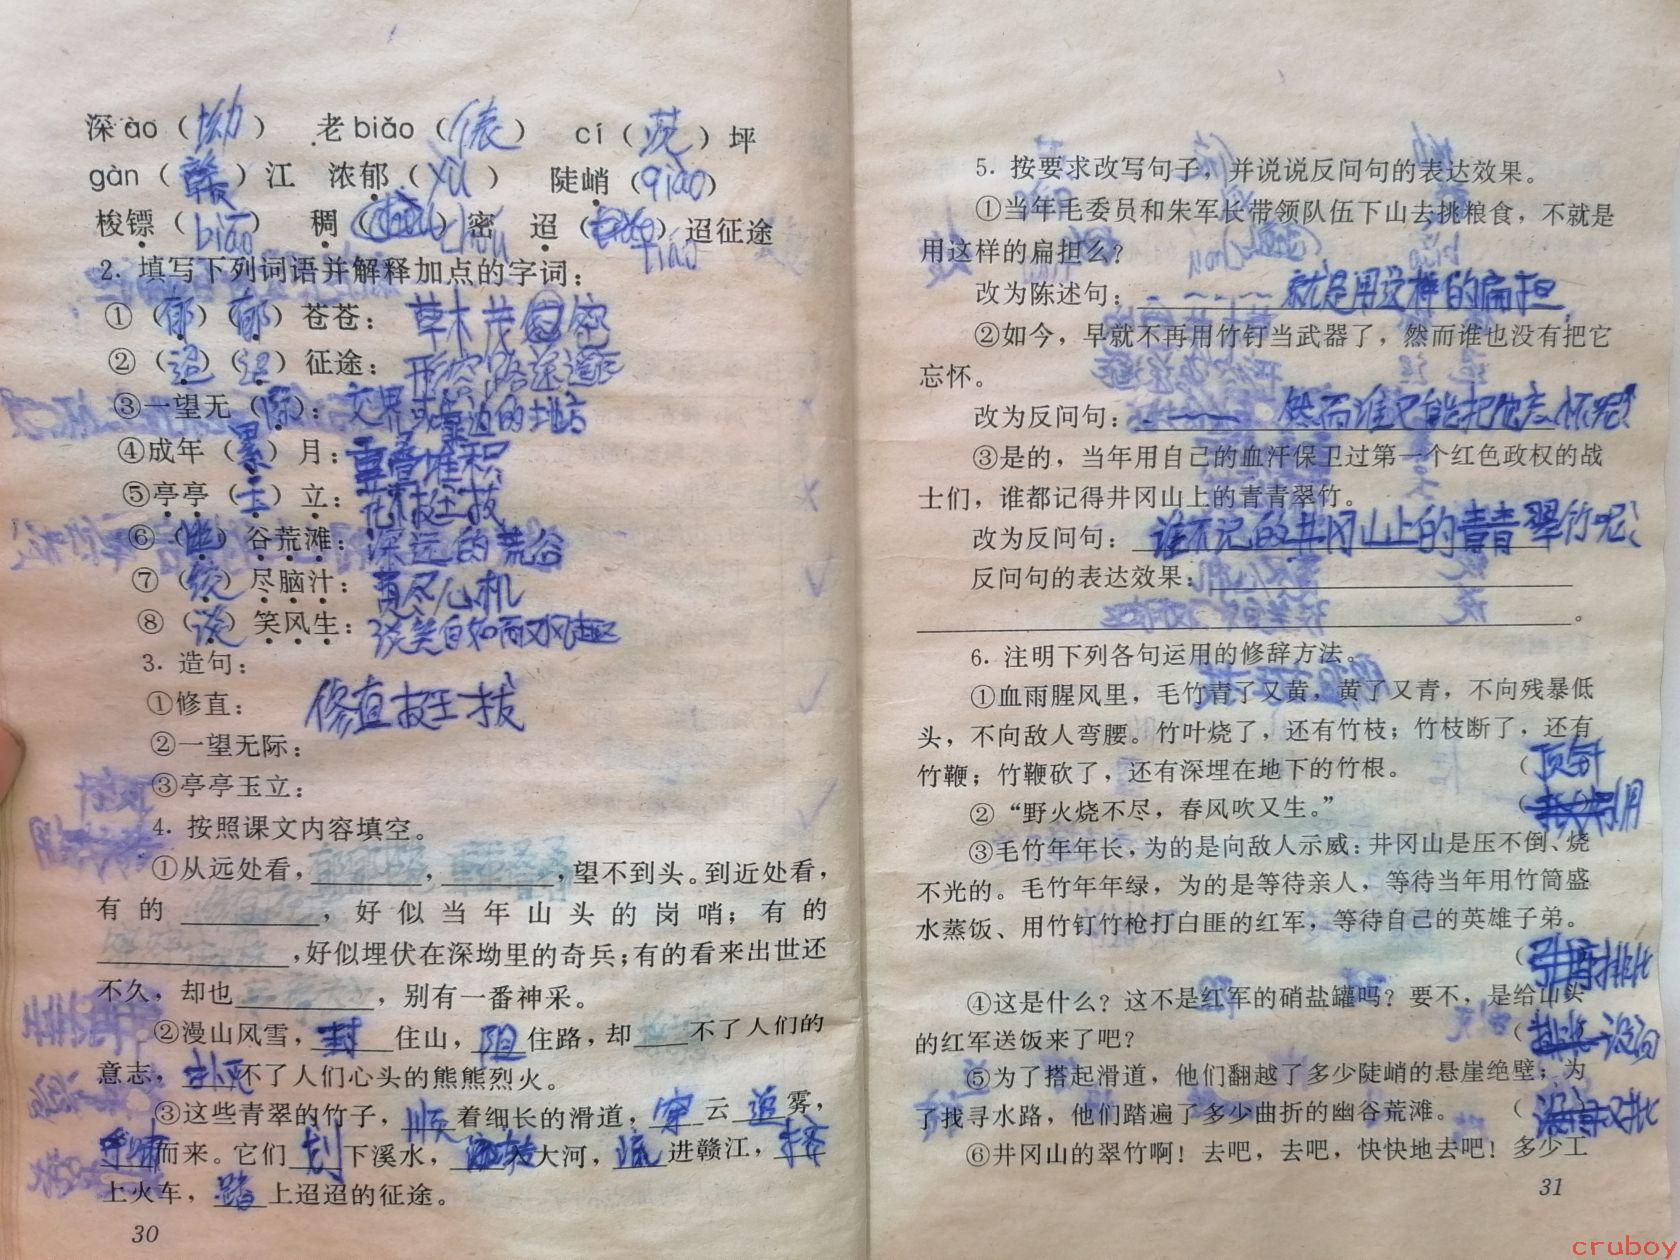 深ào（坳） 老biǎo（俵） cí（茨）坪
gàn（赣）江 浓郁（yù） 陡峭（qiào）
梭镖（biāo） 稠（chóu）密 迢（tiáo）迢征途
2. 填写下列词语并解释加点的字词：
①（郁）（郁）苍苍：草木茂密
②（迢）（迢）征途：形容路途遥远
③一望无（际）：交界或靠边的地方
④成年（累）月：重叠堆积
⑤亭亭（玉）立：花木挺拔
⑥（幽）谷荒滩：深远的荒谷
⑦（绞）尽脑汁：费尽心机
⑧（谈）笑风生：谈笑自如而又风趣
3. 造句：
①修直： 修直挺拔
②一望无际：
③亭亭玉立：
4. 按照课文内容填空。
①从远处看，________，________，望不到头。到近处看，
有的__________，好似当年山头的岗哨；有的
____________，好似埋伏在深坳里的奇兵；有的看来出世还
不久，却也__________，别有一番神采。
②漫山风雪，封住山，阻住路，却____不了人们的
意志，扑灭不了人们心头的熊熊烈火。
③这些青翠的竹子，顺着细长的滑道，穿云追雾，
而来。它们划下溪水，大河，流进赣江，挤
上火车，踏上迢迢的征途。
30
5. 按要求改写句子，并说说反问句的表达效果。
①当年毛委员和朱军长带领队伍下山去挑粮食，不就是
用这样的扁担么？
改为陈述句：就是用这样的扁担
②如今，早就不再用竹钉当武器了，然而谁也没有把它
忘怀。
改为反问句：然而谁又能把他忘怀呢？
③是的，当年用自己的血汗保卫过第一个红色政权的战
士们，谁都记得井冈山上的青青翠竹。
改为反问句：谁不记的井冈山上的青青翠竹呢？
反问句的表达效果：
。
6. 注明下列各句运用的修辞方法。
①血雨腥风里，毛竹青了又黄，黄了又青，不向残暴低
头，不向敌人弯腰。竹叶烧了，还有竹枝；竹枝断了，还有
竹鞭；竹鞭砍了，还有深埋在地下的竹根。 （顶针
②“野火烧不尽，春风吹又生。” （引用
③毛竹年年长，为的是向敌人示威：井冈山是压不倒、烧
不光的。毛竹年年绿，为的是等待亲人，等待当年用竹筒盛
水蒸饭、用竹钉竹枪打白匪的红军，等待自己的英雄子弟。
（排比
④这是什么？这不是红军的硝盐罐吗？要不，是给山头
的红军送饭来了吧？ （设问
⑤为了搭起滑道，他们翻越了多少陡峭的悬崖绝壁；为
了找寻水路，他们踏遍了多少曲折的幽谷荒滩。 （排比
⑥井冈山的翠竹啊！去吧，去吧，快快地去吧！多少工
31
cruboy